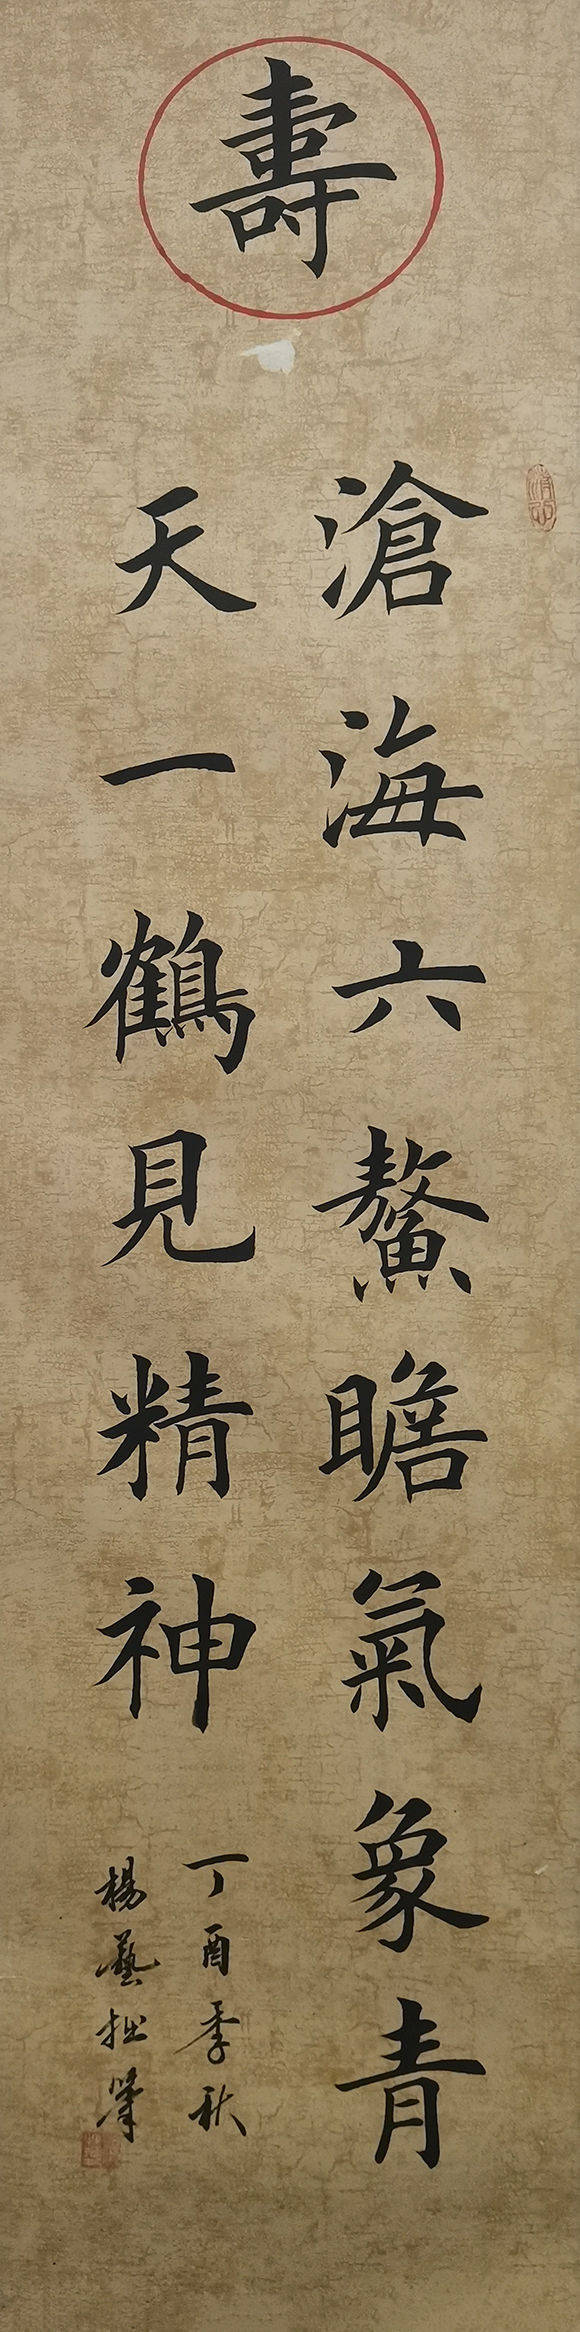 壽
滄海六鰲瞻氣象青
天一鶴見精神
丁酉季秋
楊藝拙筆